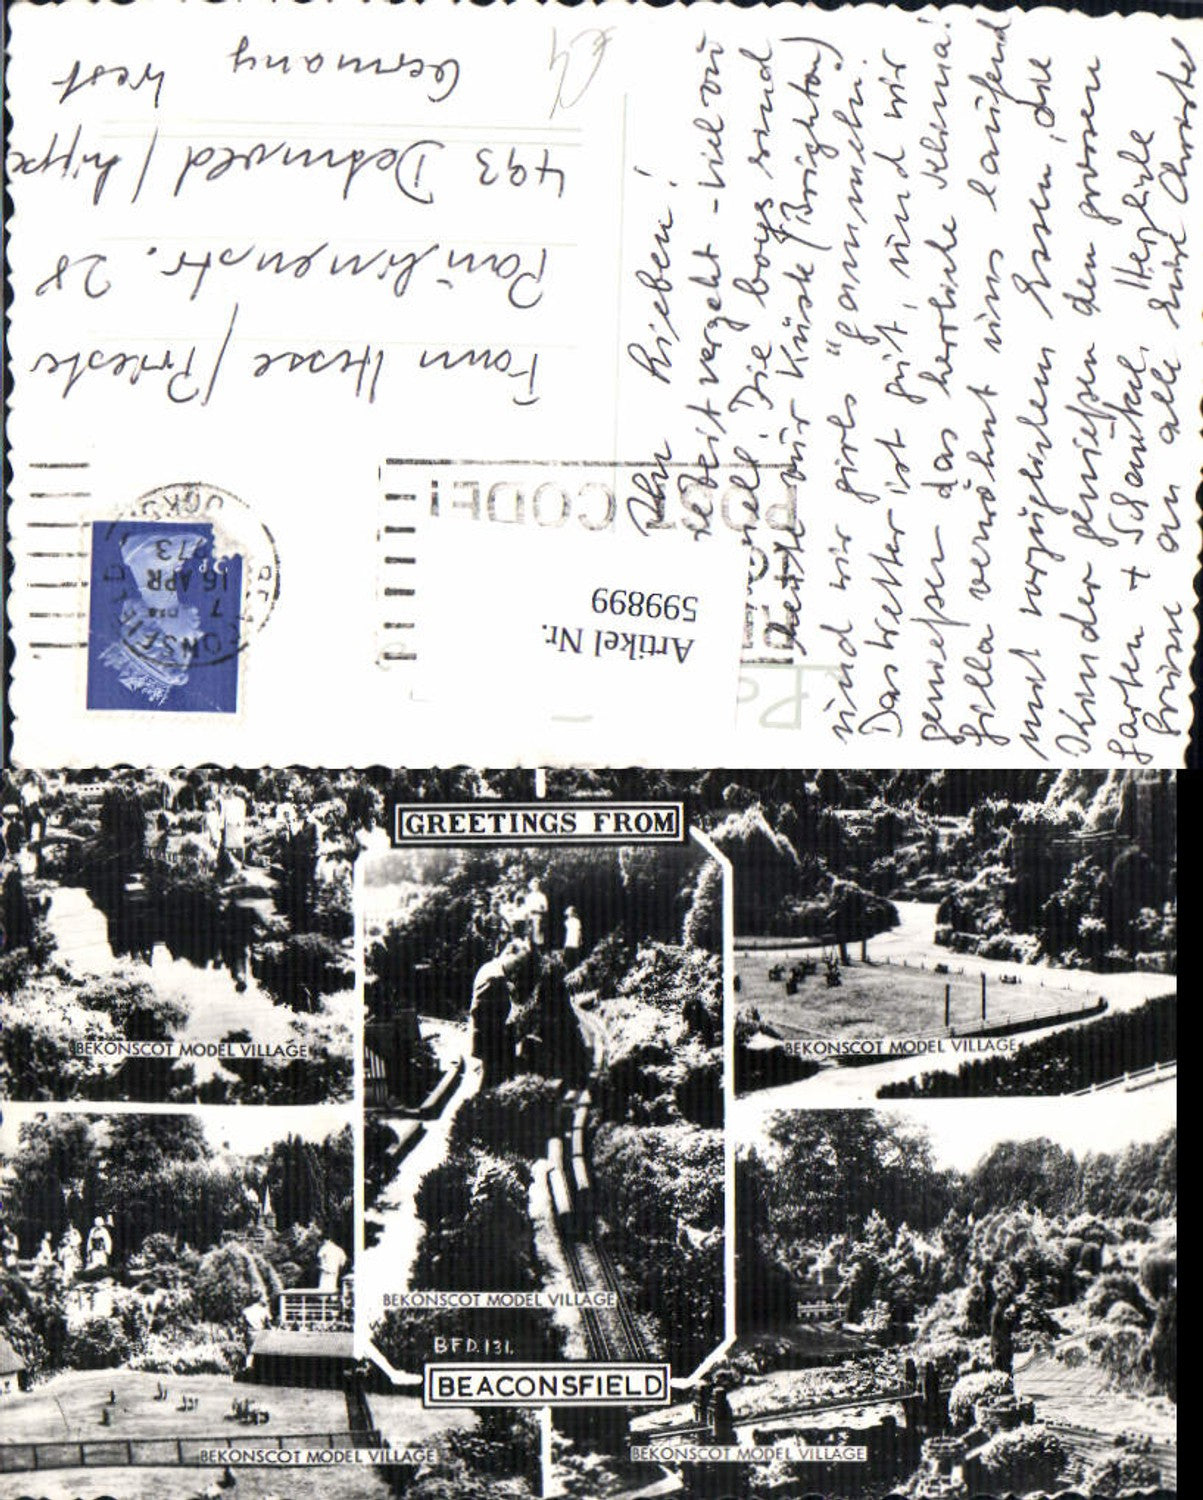 Ihr Lieben!
Zeit vergeht - viel zu
Die boys sind
heute zur Küste (Brighton)
und wir girls "gammeln".
Das Wetter ist gut, und wir
genießen das herrliche Klima!
Gilla verwöhnt uns laufend
mit vorzüglichem Essen, die
Kinder genießen den grossen
Garten + Schaukel. Herzliche
Grüsse an alle Eure
Fam Hesse /
Paulinenstr. 28
493 Detmold / Lippe
Germany West
POST CODE!
7
16 APR
1973
Artikel Nr.
599899
GREETINGS FROM
BEKONSCOT MODEL VILLAGE
BEKONSCOT MODEL VILLAGE
BEKONSCOT MODEL VILLAGE
B.F.D.131.
BEACONSFIELD
BEKONSCOT MODEL VILLAGE
BEKONSCOT MODEL VILLAGE